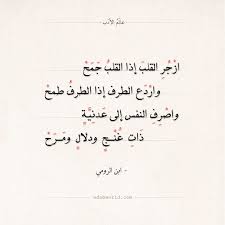 عالم الأدب
ازْجُرِ القلبَ إذا القلبُ جَمَحْ
وارْدَعِ الطرفَ إذا الطرفُ طمحْ
واصْرِفِ النفسَ إلى عَدنيَّةٍ
ذَاتِ غُنْجٍ ودلالٍ ومَرَحْ
- ابن الرومي -
adabworld.com